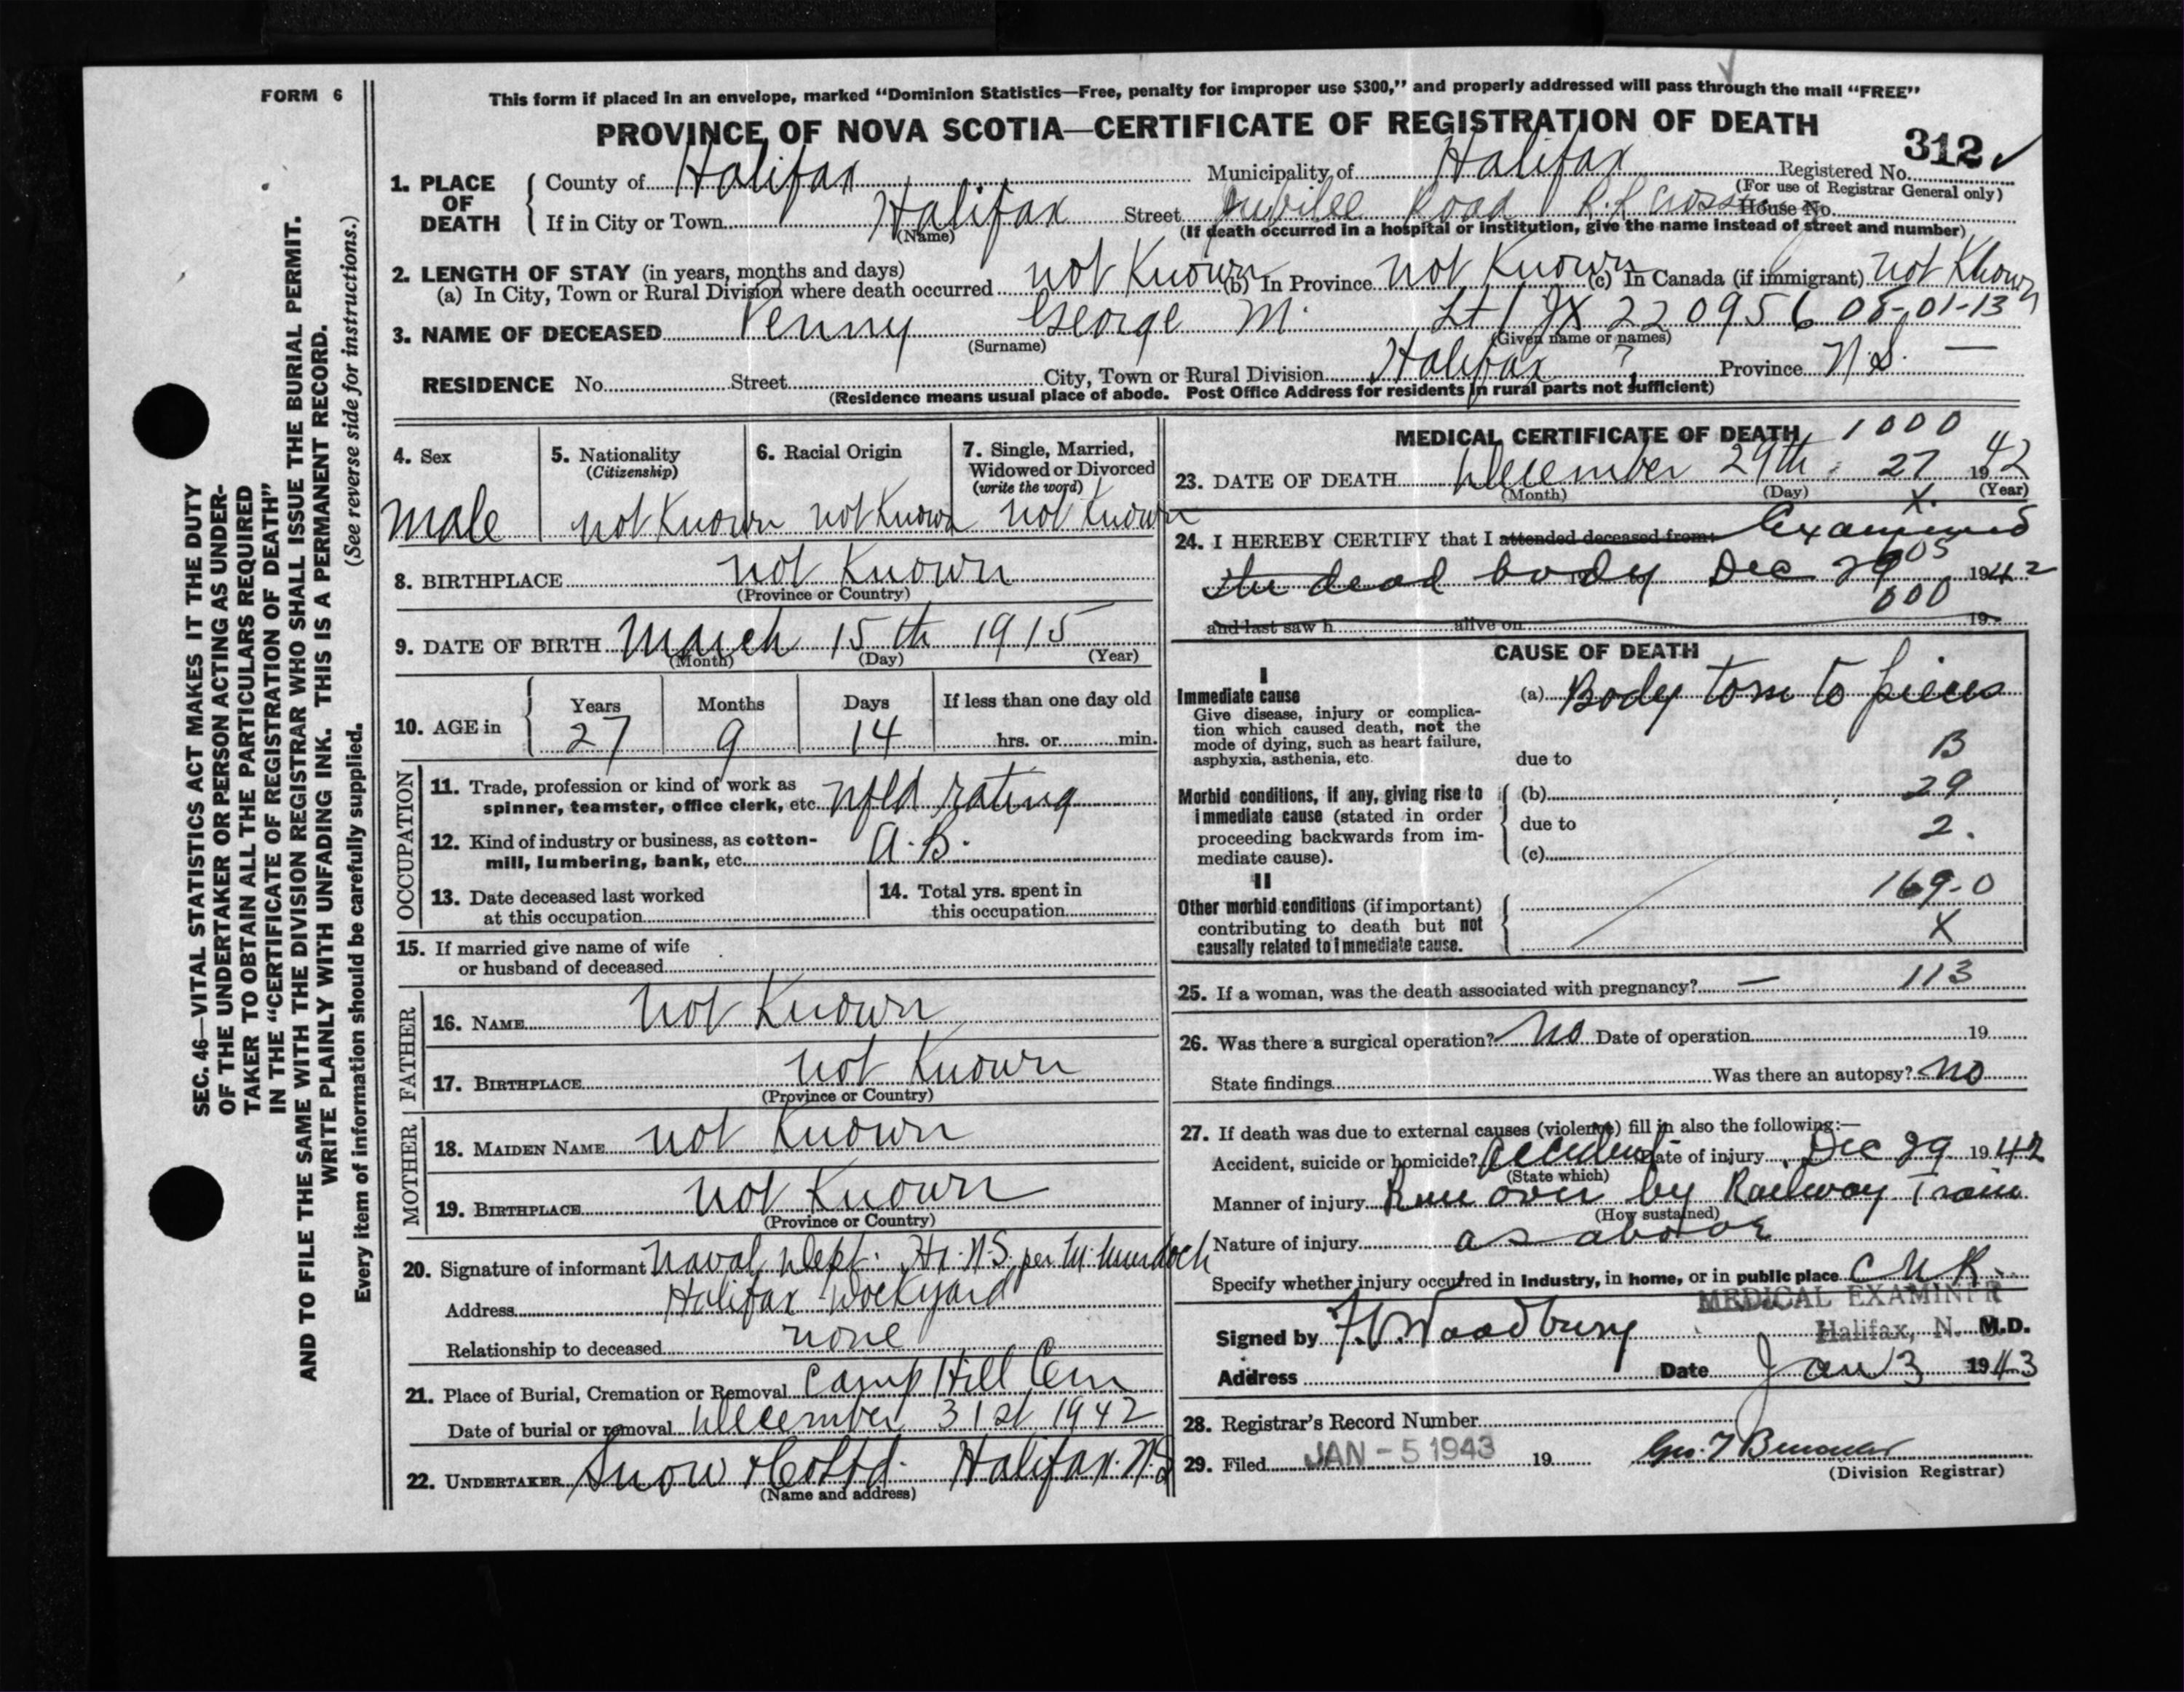 FORM 6
This form if placed in an envelope, marked "Dominion Statistics—Free, penalty for improper use $300," and properly addressed will pass through the mail "FREE"
PROVINCE OF NOVA SCOTIA—CERTIFICATE OF REGISTRATION OF DEATH
312 ✓
1. PLACE OF DEATH { County of Halifax Municipality of Halifax Registered No.
(For use of Registrar General only)
If in City or Town Halifax Street Jubilee Road R.R House No.
(Name) (If death occurred in a hospital or institution, give the name instead of street and number)
2. LENGTH OF STAY (in years, months and days)
(a) In City, Town or Rural Division where death occurred not Known (b) In Province not Known (c) In Canada (if immigrant) not Known
3. NAME OF DECEASED Penny George M. JX 220956 08-01-13
(Surname) (Given name or names)
RESIDENCE No. Street City, Town or Rural Division Halifax ? Province N.S. —
(Residence means usual place of abode. Post Office Address for residents in rural parts not sufficient)
4. Sex male
5. Nationality (Citizenship) not Known
6. Racial Origin not Known
7. Single, Married, Widowed or Divorced (write the word) not Known
8. BIRTHPLACE not Known
(Province or Country)
9. DATE OF BIRTH March 15th 1915
(Month) (Day) (Year)
10. AGE in { Years 27 Months 9 Days 14 If less than one day old
hrs. or min.
OCCUPATION
11. Trade, profession or kind of work as
spinner, teamster, office clerk, etc. Nfld rating
12. Kind of industry or business, as cotton-
mill, lumbering, bank, etc. A.B.
13. Date deceased last worked
at this occupation
14. Total yrs. spent in
this occupation
15. If married give name of wife
or husband of deceased
FATHER
16. NAME not Known
17. BIRTHPLACE not Known
(Province or Country)
MOTHER
18. MAIDEN NAME not Known
19. BIRTHPLACE not Known
(Province or Country)
20. Signature of informant Naval Dept. Hx. N.S. per M. Murdoch
Address Halifax Dockyard
Relationship to deceased none
21. Place of Burial, Cremation or Removal Camp Hill Cem
Date of burial or removal December 31st 1942
22. UNDERTAKER Snow & Co Ltd. Halifax. N.S
(Name and address)
MEDICAL CERTIFICATE OF DEATH 1000
23. DATE OF DEATH December 29th 27 1942
(Month) (Day) (Year)
X.
24. I HEREBY CERTIFY that I attended deceased from: Examined
the dead body Dec 29 1942
05
000
and last saw h alive on 19
CAUSE OF DEATH
I
Immediate cause
Give disease, injury or complica-
tion which caused death, not the
mode of dying, such as heart failure,
asphyxia, asthenia, etc.
(a) Body torn to pieces
due to B
Morbid conditions, if any, giving rise to
immediate cause (stated in order
proceeding backwards from im-
mediate cause).
(b) 29
due to 2.
(c)
II
Other morbid conditions (if important)
contributing to death but not
causally related to immediate cause.
169-0
X
25. If a woman, was the death associated with pregnancy? — 113
26. Was there a surgical operation? No Date of operation 19
State findings Was there an autopsy? No
27. If death was due to external causes (violence) fill in also the following:—
Accident, suicide or homicide? Accident Date of injury Dec 29 1942
(State which)
Manner of injury Run over by Railway Train
(How sustained)
Nature of injury as above
Specify whether injury occurred in industry, in home, or in public place C N R.
MEDICAL EXAMINER
Halifax, N.
Signed by Woodbury M.D.
Address Date Jan 3 1943
28. Registrar's Record Number
29. Filed JAN - 5 1943 19
(Division Registrar)
SEC. 46—VITAL STATISTICS ACT MAKES IT THE DUTY
OF THE UNDERTAKER OR PERSON ACTING AS UNDER-
TAKER TO OBTAIN ALL THE PARTICULARS REQUIRED
IN THE "CERTIFICATE OF REGISTRATION OF DEATH"
AND TO FILE THE SAME WITH THE DIVISION REGISTRAR WHO SHALL ISSUE THE BURIAL PERMIT.
WRITE PLAINLY WITH UNFADING INK. THIS IS A PERMANENT RECORD.
Every item of information should be carefully supplied. (See reverse side for instructions.)